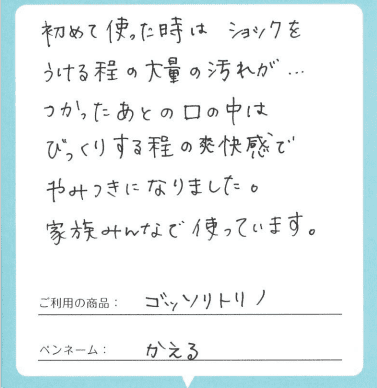 初めて使った時は ショックを
うける程の大量の汚れが…
つかったあとの口の中は
びっくりする程の爽快感で
やみつきになりました。
家族みんなで使っています。
ご利用の商品： ゴッソリトリノ
ペンネーム： かえる